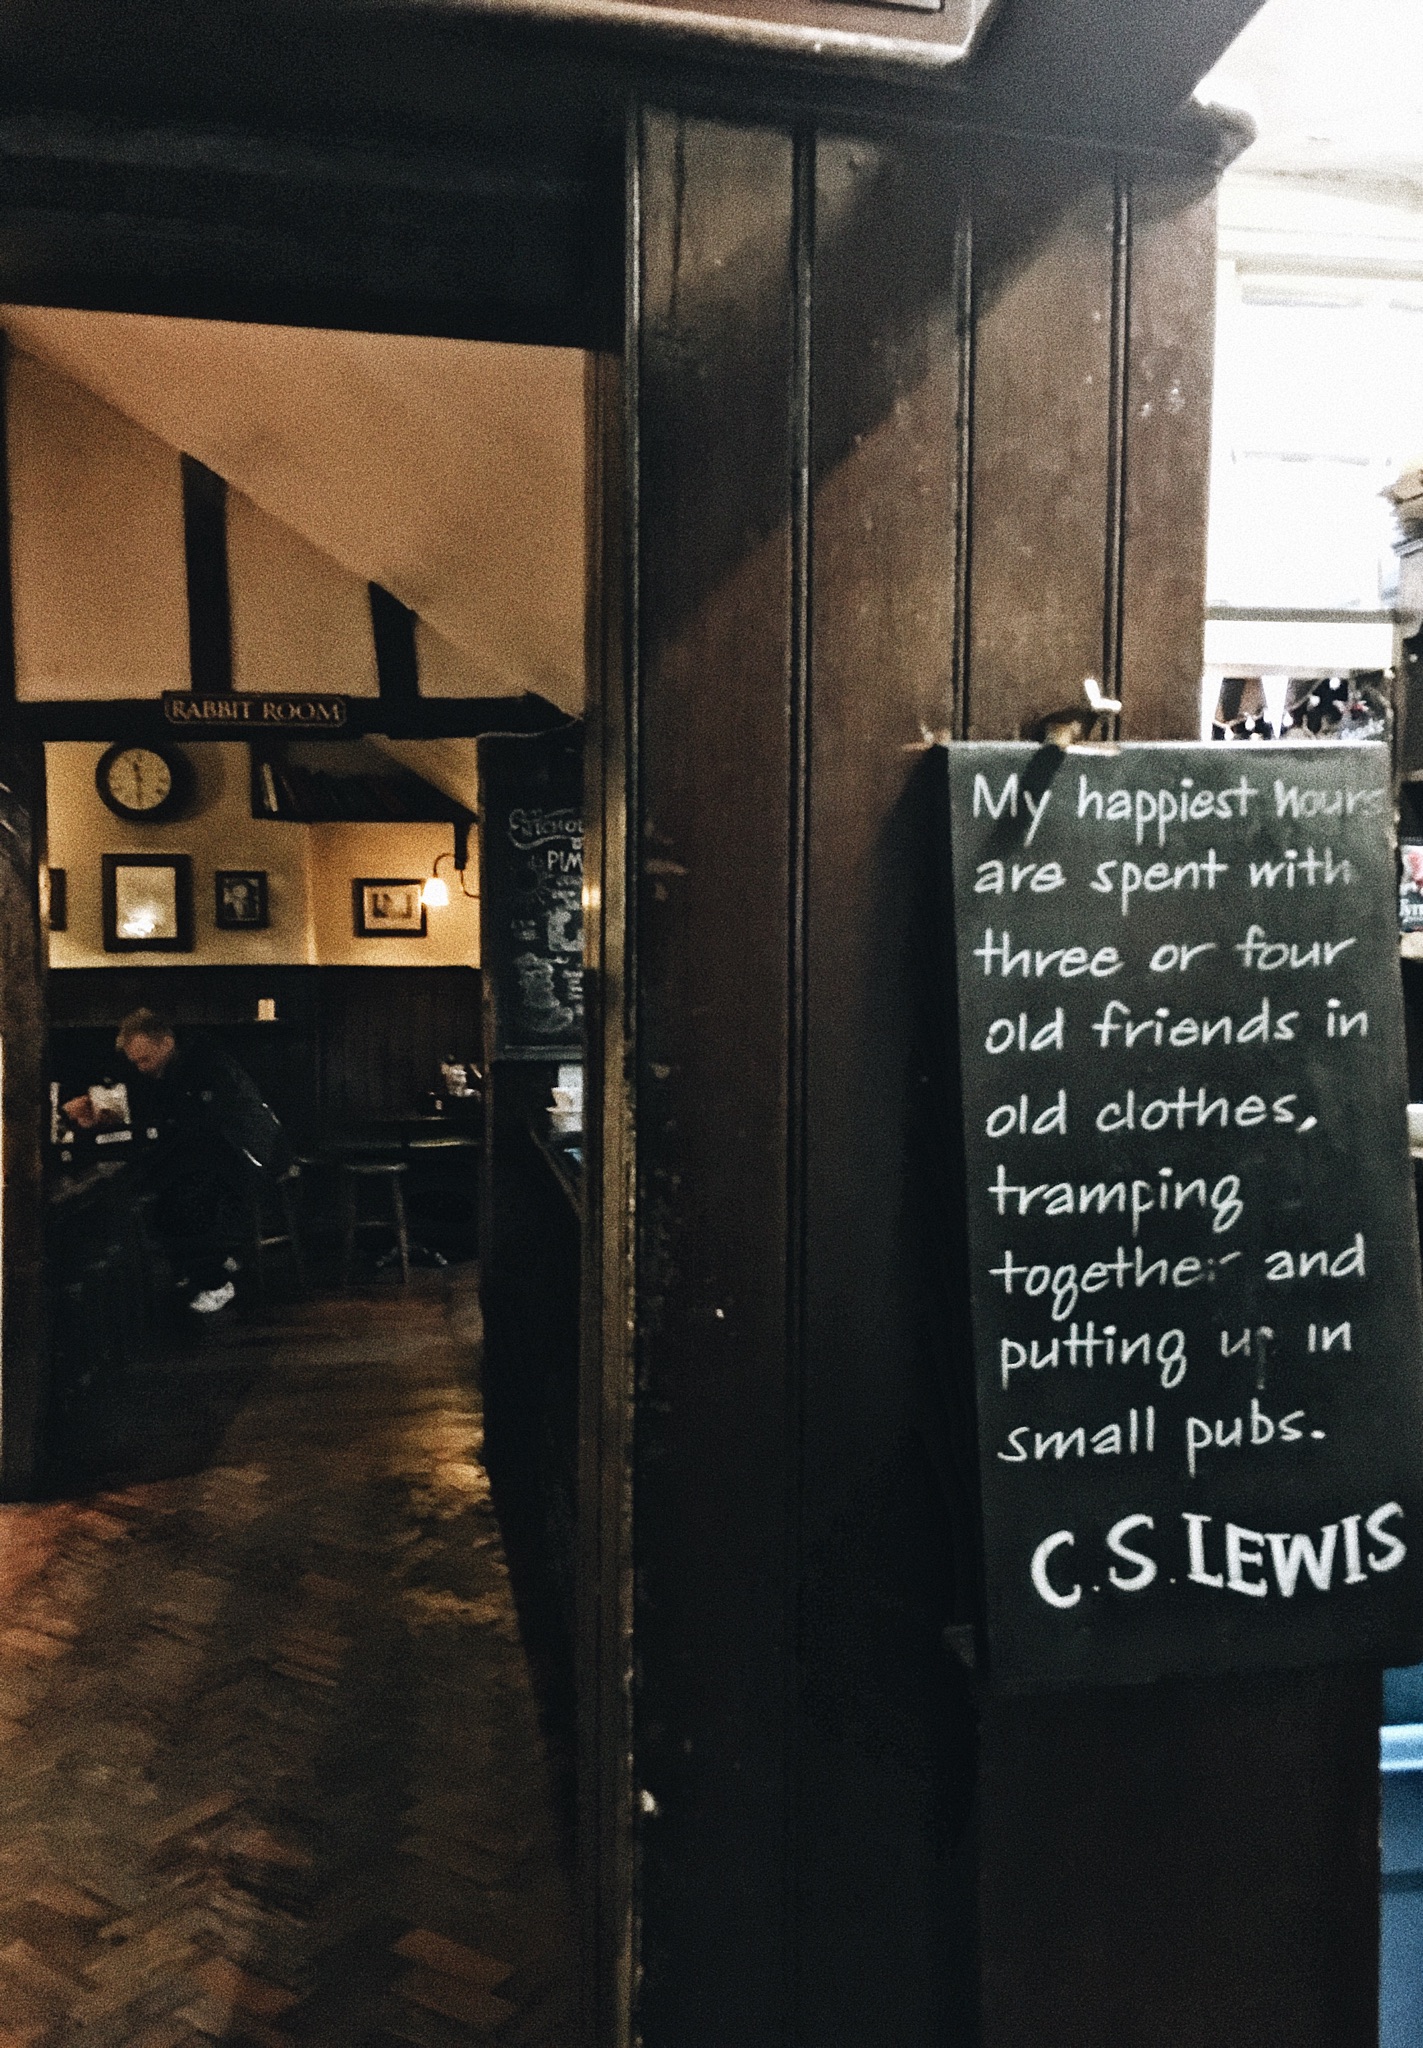 RABBIT ROOM
PIM
My happiest hours
are spent with
three or four
old friends in
old clothes,
tramping
together and
putting up in
small pubs.
C.S.LEWIS